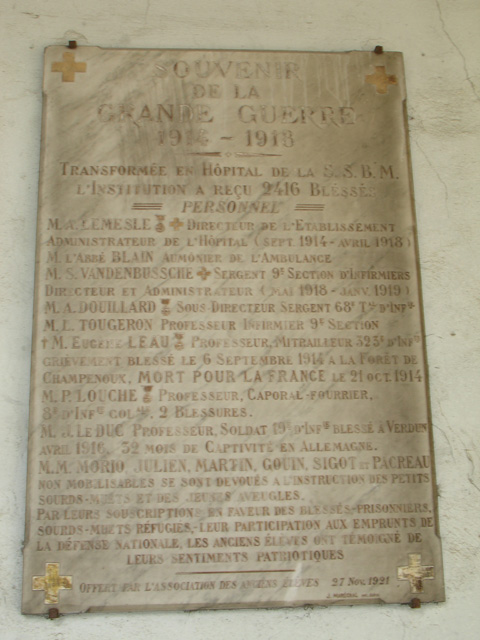 SOUVENIR
DE LA
GRANDE GUERRE
1914 - 1918
TRANSFORMÉE EN HÔPITAL DE LA S.S.B.M.
L'INSTITUTION A REÇU 2416 BLESSÉS
PERSONNEL
M. A. LEMESLE DIRECTEUR DE L'ETABLISSEMENT
ADMINISTRATEUR DE L'HÔPITAL (SEPT. 1914 - AVRIL 1918)
M. L'ABBÉ BLAIN AUMÔNIER DE L'AMBULANCE
M. S. VANDENBUSSCHE SERGENT 9e SECTION D'INFIRMIERS
DIRECTEUR ET ADMINISTRATEUR (MAI 1918 - JANV. 1919)
M. A. DOUILLARD SOUS-DIRECTEUR SERGENT 68e D'INFie
M. L. TOUGERON PROFESSEUR INFIRMIER 9e SECTION
† M. EUGÈNE LEAU PROFESSEUR, MITRAILLEUR 325e D'INFie
GRIÈVEMENT BLESSÉ LE 6 SEPTEMBRE 1914 A LA FORÊT DE
CHAMPENOUX, MORT POUR LA FRANCE LE 21 OCT. 1914
M. P. LOUCHE PROFESSEUR, CAPORAL-FOURRIER,
8e D'INFie COLle, 2 BLESSURES.
M. J. LE DUC PROFESSEUR, SOLDAT D'INFie BLESSÉ A VERDUN
AVRIL 1916, 32 MOIS DE CAPTIVITÉ EN ALLEMAGNE.
M.M. MORIO, JULIEN, MARTIN, GOUIN, SIGOT ET PACREAU
NON MOBILISABLES SE SONT DÉVOUÉS A L'INSTRUCTION DES PETITS
SOURDS-MUETS ET DES JEUNES AVEUGLES.
PAR LEURS SOUSCRIPTIONS EN FAVEUR DES BLESSÉS, PRISONNIERS,
SOURDS-MUETS RÉFUGIÉS, LEUR PARTICIPATION AUX EMPRUNTS DE
LA DÉFENSE NATIONALE, LES ANCIENS ÉLÈVES ONT TÉMOIGNÉ DE
LEURS SENTIMENTS PATRIOTIQUES
OFFERT PAR L'ASSOCIATION DES ANCIENS ÉLÈVES 27 NOV. 1921